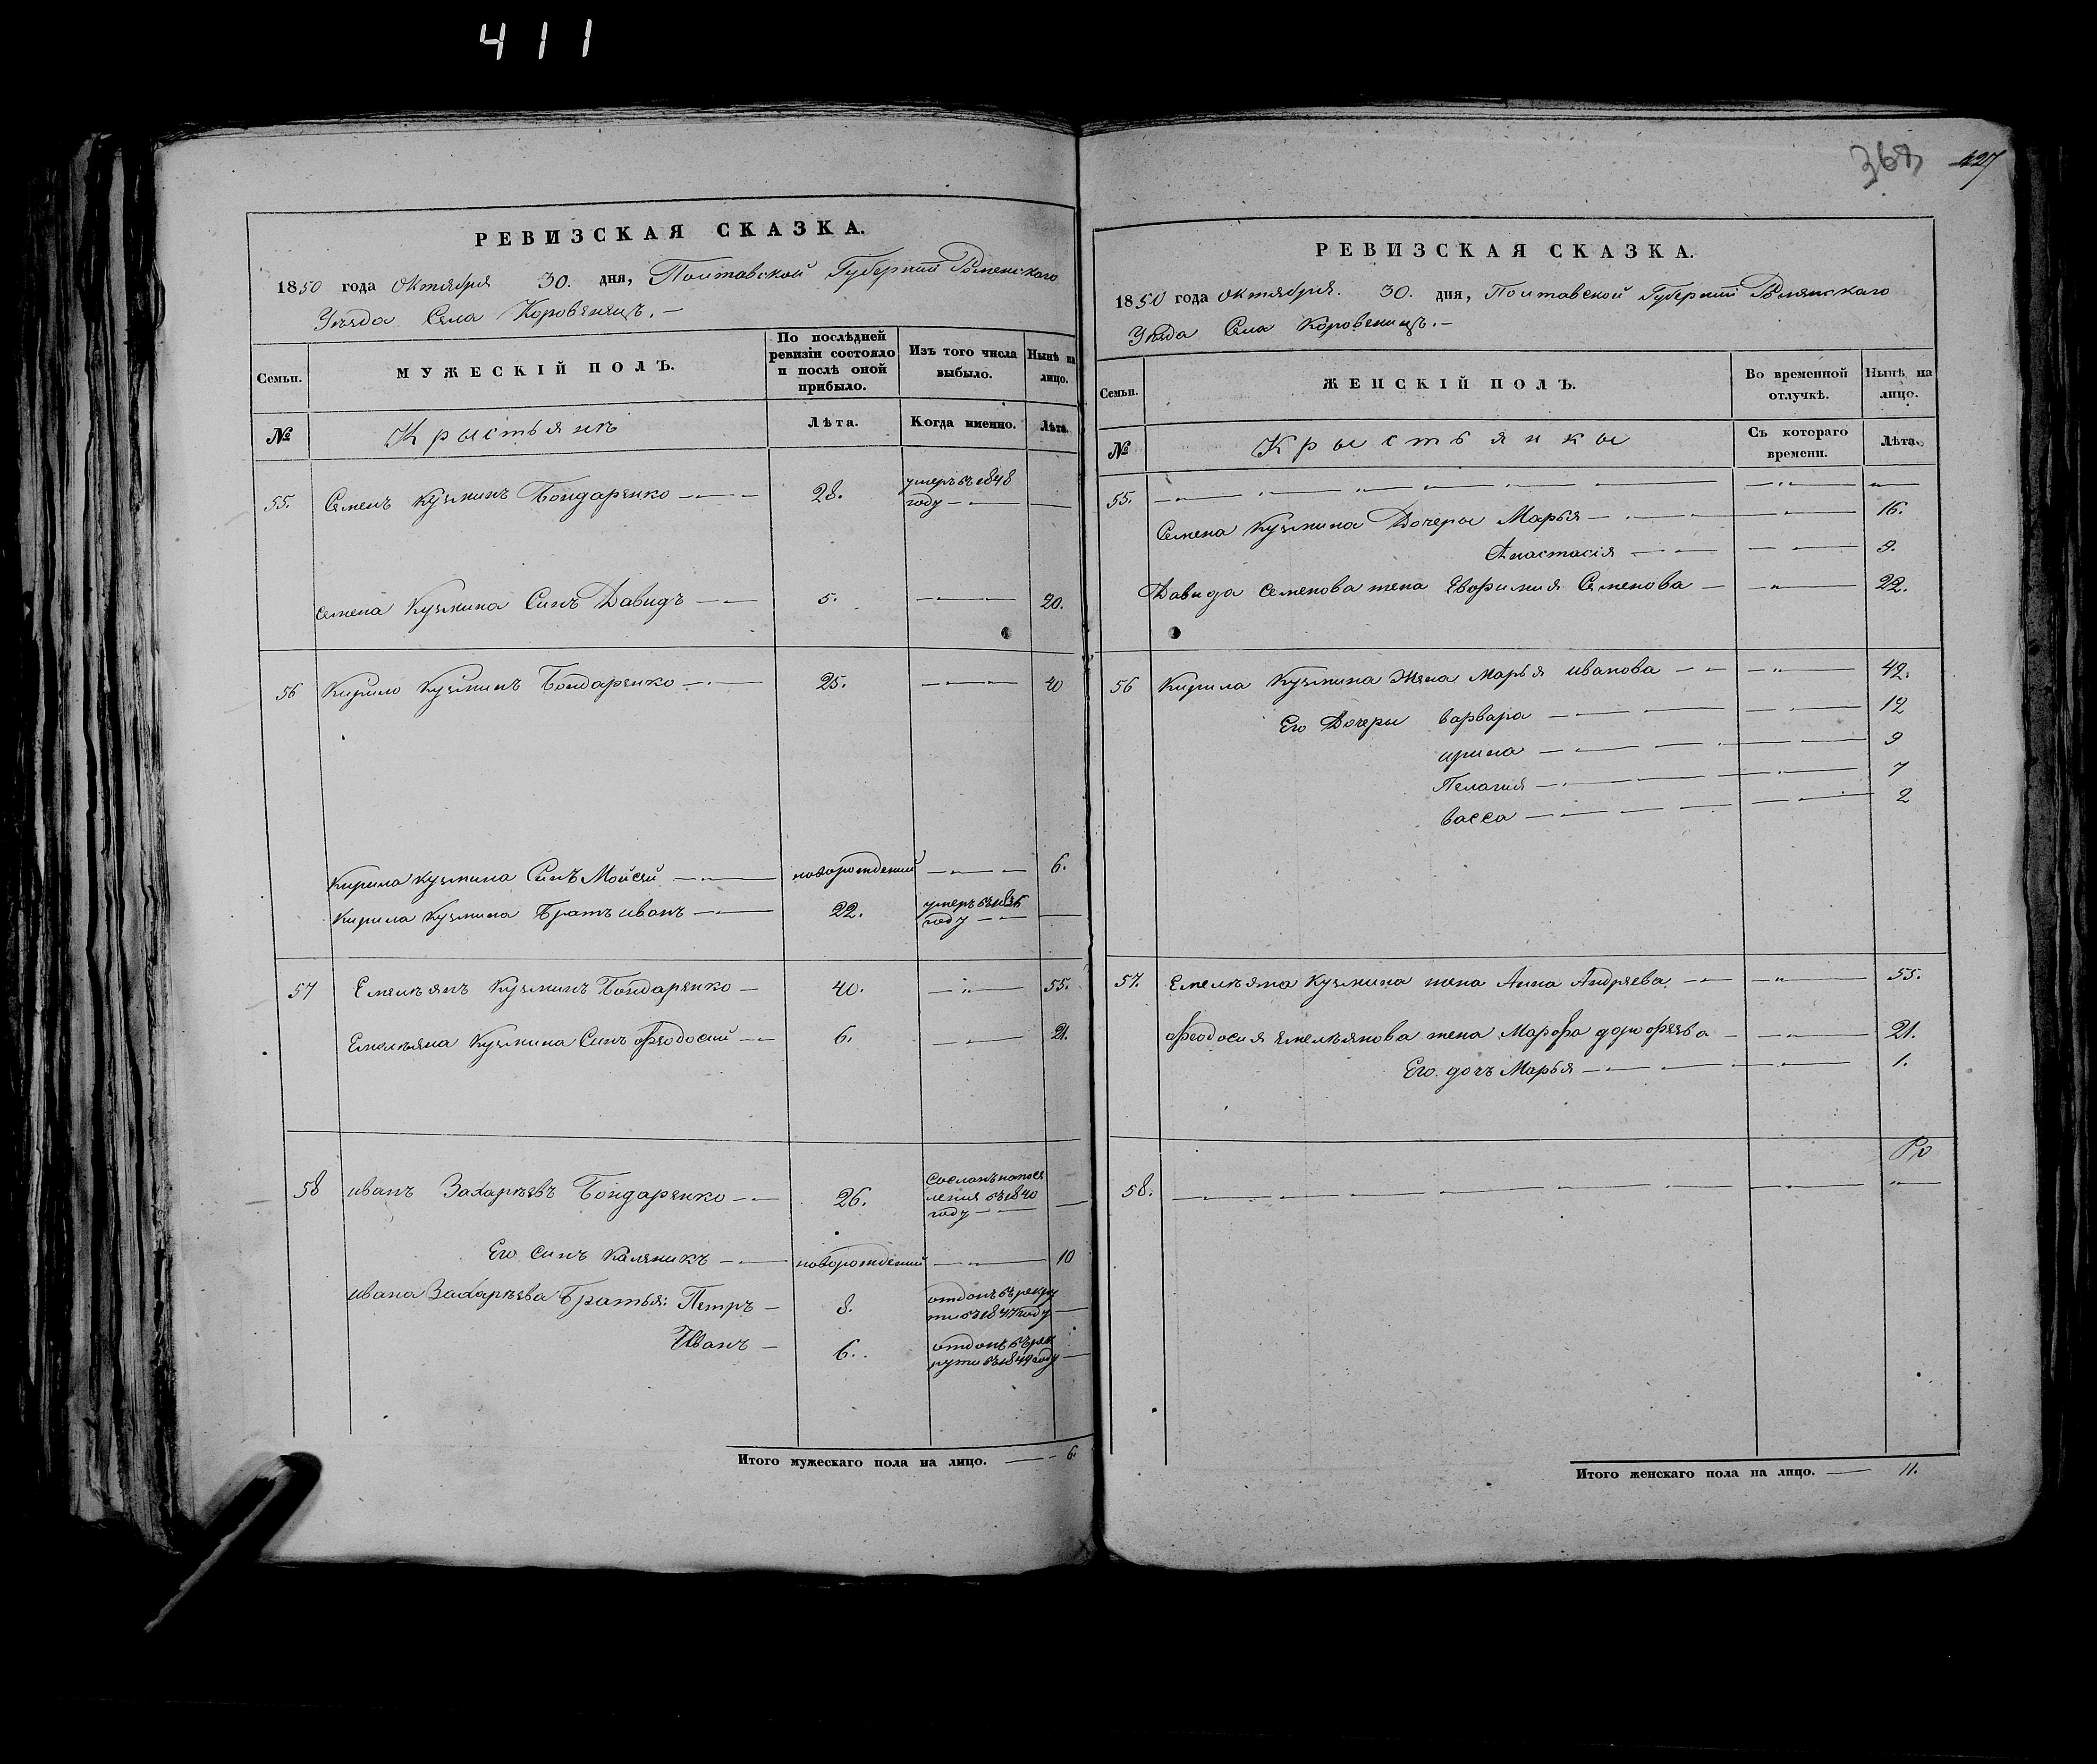 411
368
427
РЕВИЗСКАЯ СКАЗКА.
1850 года Октября 30. дня, Полтавской Губерний Роменскаго
Уезда Села Коровенецъ. —
Семьи. МУЖЕСКІЙ ПОЛЪ. По послѣдней ревизіи состояло и послѣ оной прибыло. Изъ того числа выбыло. Нынѣ на лицо.
№ Крыстьянъ Лѣта. Когда именно. Лѣта.
55. Семенъ Кузминъ Бондаренко 28. умеръ въ 1848 году
семена Кузмина Синъ Давидъ 5. 20.
56 Кирило Кузминъ Бондаренко 25. 40
Кирила Кузмина Синъ Мойсей новорождений 6.
Кирила Кузмина Братъ иванъ 22. умеръ въ году
57 Емельянъ Кузминъ Бондаренко 40. 55.
Емельяна Кузмина Синъ Феодосий 6. 21.
58 иванъ Захарьевъ Бондаренко 26. Сосланъ на посе ления въ 1840 году
Его синъ Каленикъ новорожденний 10
ивана Захарьева Братья: Петръ 8. отданъ въ рекру ти въ 1847 году
Иванъ 6. отданъ въ рек рути въ 1849 году
Итого мужескаго пола на лицо. 6.
РЕВИЗСКАЯ СКАЗКА.
1850 года Октября. 30. дня, Полтавской Губерний Роменскаго
Уезда Села Коровенецъ. —
Семьи. ЖЕНСКІЙ ПОЛЪ. Во временной отлучкѣ. Нынѣ на лицо.
№ Крыстьянкы Съ котораго времени. Лѣта.
55.
Семена Кузмина Дочеры Марья 16.
Анастасія 9.
Давида Семенова жена Евфимия Семенова 22.
56 Кирила Кузмина Жена Марья иванова 42.
Его Дочеры варвара 12
ирина 9
Пелагия 7
васса 2
57. Емельяна Кузмина жена Анна Андреева 55.
Феодосия Емельянова жена Марфа дорофеева 21.
Его дочъ Марья 1.
58.
Итого женскаго пола на лицо. 11.